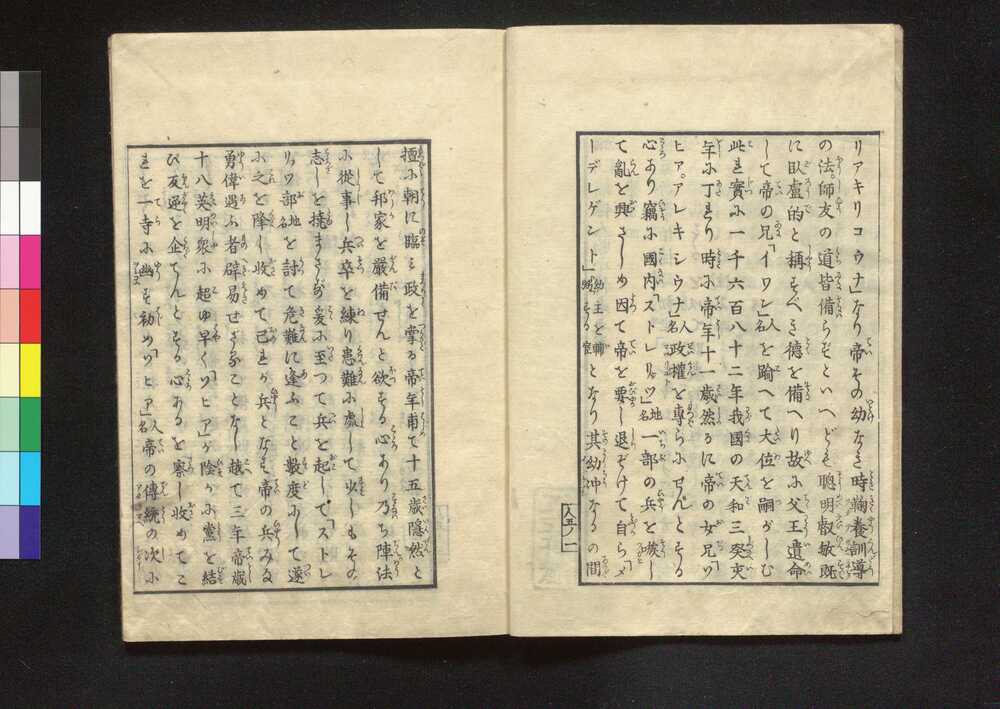 リアキリコウナ」なり帝その幼なき時鞠養訓導
の法。師友の道皆備らずといへども聰明叡敏既
に臥龍的と稱すべき徳を備へり故に父王遺命
して帝の兄「イワン」人名を踰へて大位を嗣がしむ
此年實に一千六百八十二年我國の天和三癸亥
年に丁れり時に帝年十一歳然るに帝の女兄「ソ
ヒア。アレキシウナ」人名政權を專らにせんとする
心あり竊に國内「ストレリッツ」地名一部の兵を嗾し
て亂を興さしめ因て帝を要し退ぞけて自ら「メ
ーデレゲント」幼主を輔する官となり其幼冲なるの間
擅に朝に臨み政を掌る帝年甫て十五歳隠然と
して邦家を嚴備せんと欲する心あり乃ち陣法
に從事し兵卒を練り患難に處して少しもその
志しを撓まさず爰に至つて兵を起して「ストレ
リッツ」部地名を討て危難に逢ふこと數度にして遂
に之を降し收めて己れが兵となす帝の兵みな
勇偉遇ふ者辟易せざることなし越て三年帝歳
十八英明衆に超ゆ早く「ソヒア」が陰かに黨を結
び反逆を企てんとする心あるを察し收めてこ
れを一寺に幽す初め「ソヒア」人名帝の傳統の次に